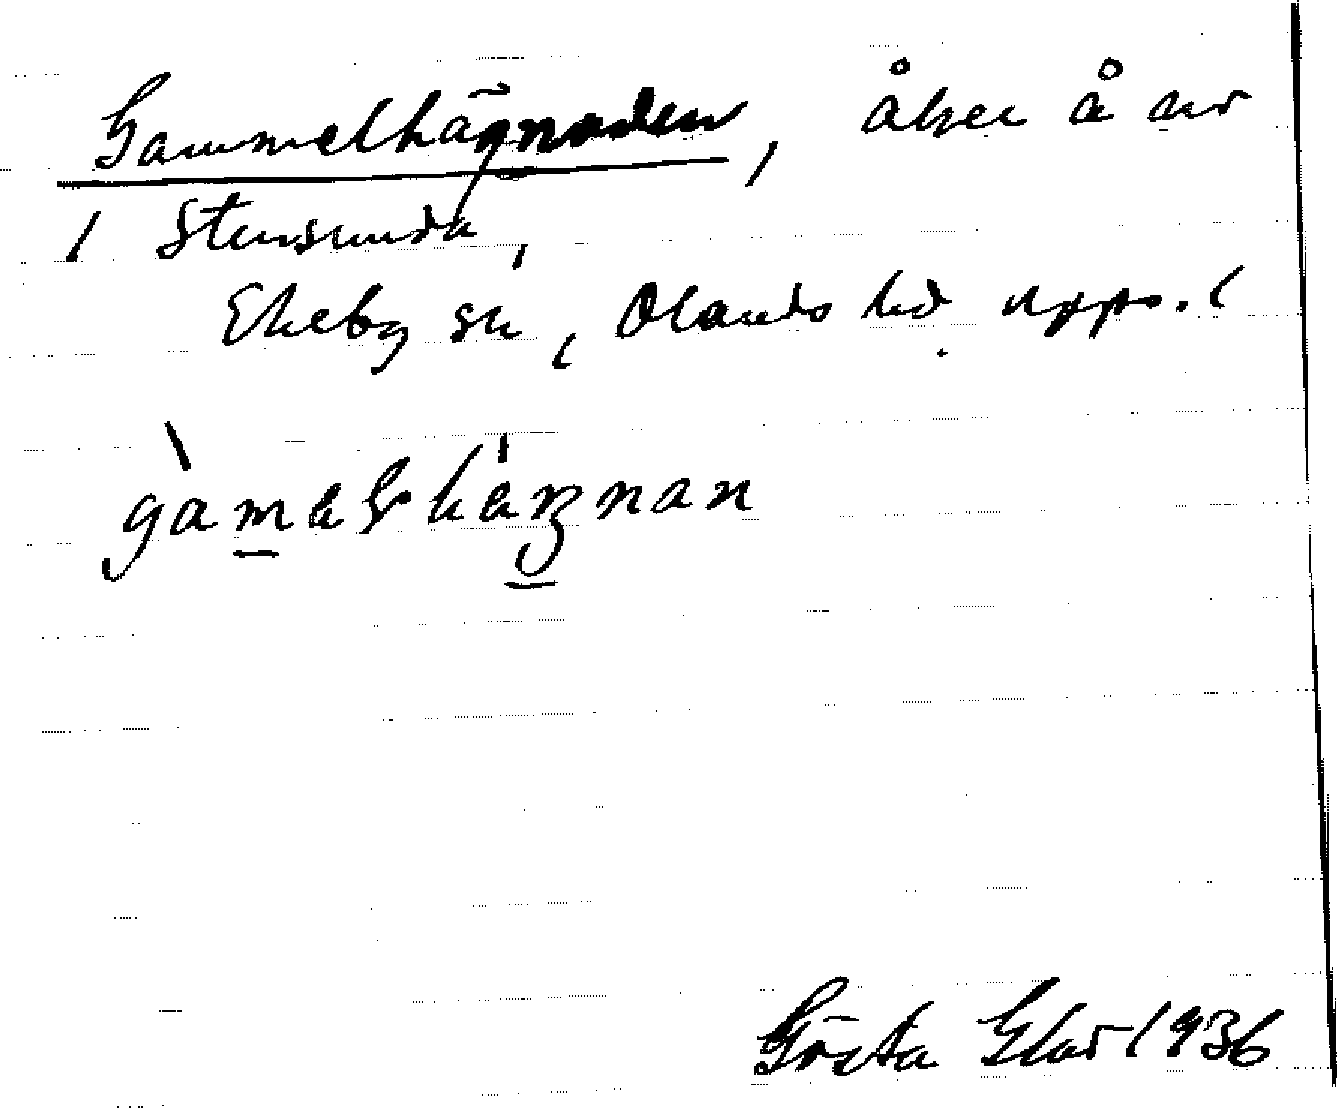 Gammelhägnaden, åker å är
i Stensunda,
Ekeby sn, Olands hd Upps. l
gàmalhä́ŋnan
Gösta
1936